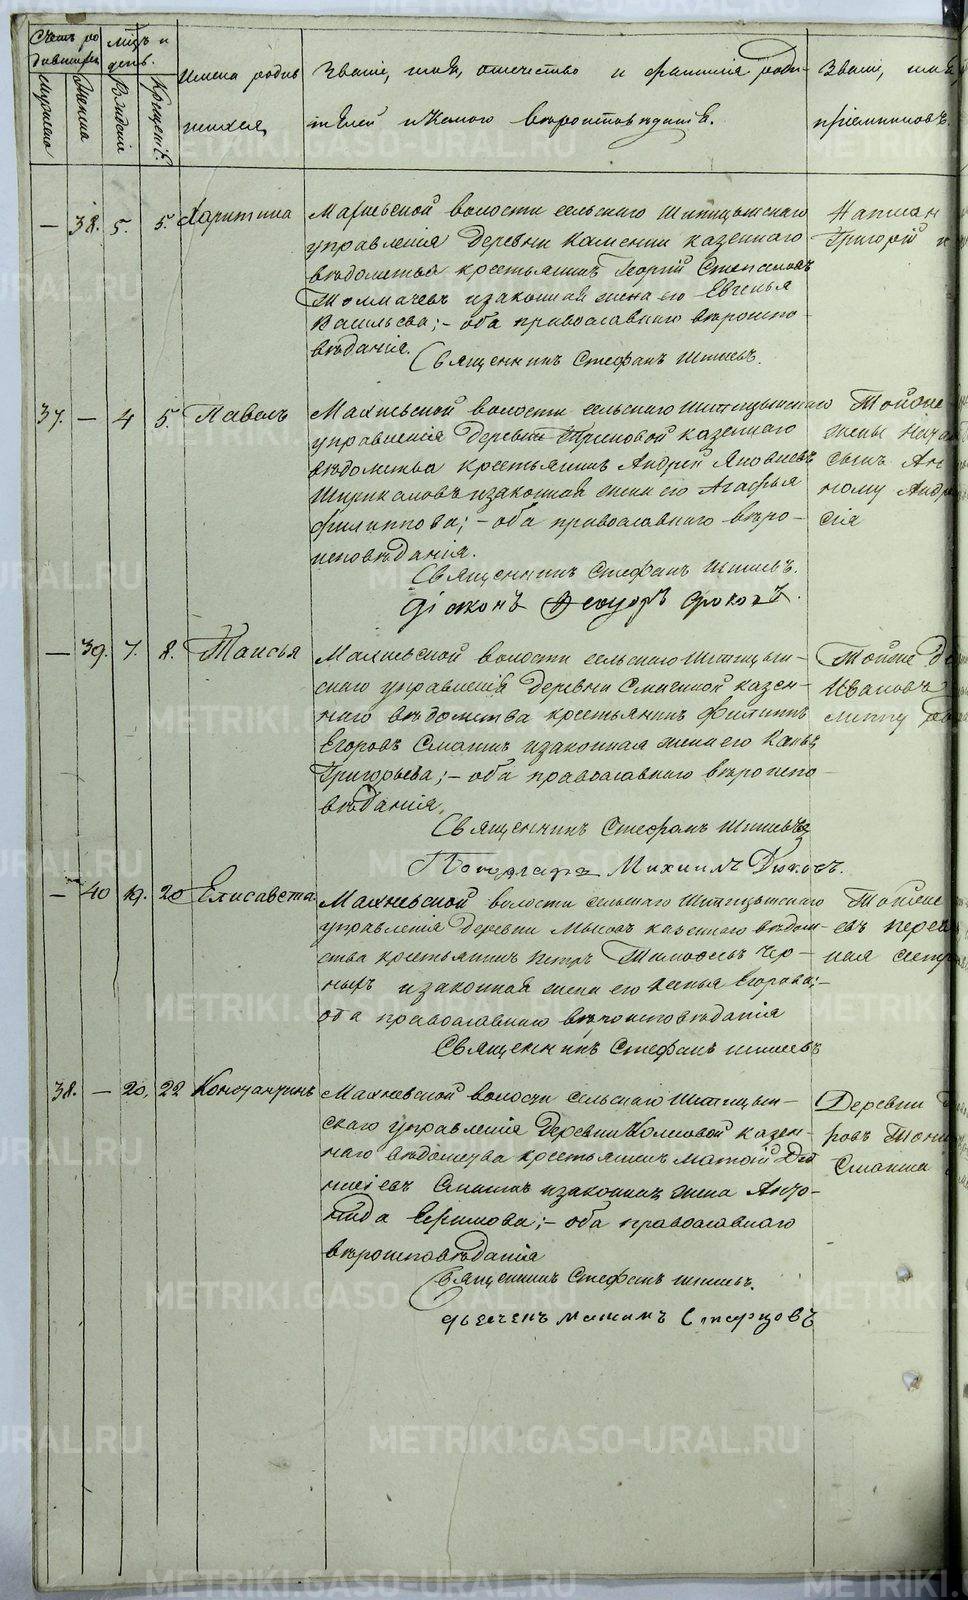 Счетъ ро
дившихся
мѣсяцъ и
день.
Имена родив
шихся
Званіе, имя, отчество и фамилія роди-
телей и какого вѣроисповѣданія.
Званіе, имя,
пріемниковъ.
мужеска
женска
Рожденія
Крещенія
— 38. 5. 5. Харитина
Махневской волости сельскаго Шипицынскаго
управленія деревни Каменки казеннаго
вѣдомства крестьянинъ Георгій Степановъ
Толмачевъ и законная жена его Евгенья
Васильева; – оба православнаго вѣроиспо-
вѣданія.
Священникъ Стефанъ
Григорій
37. — 4 5. Павелъ
Махневской волости сельскаго Шипицынскаго
управленія деревни казеннаго
вѣдомства крестьянинъ Андрей Яковлевъ
и законная жена его Агафья
Филиппова; – оба православнаго вѣро-
исповѣданія.
Священникъ Стефанъ
Діаконъ
Тойже
жены
сынъ
ному Андре
сія
— 39. 7. 8. Таисья
Махневской волости сельскаго Шипицын-
скаго управленія деревни казен-
наго вѣдомства крестьянинъ Филиппъ
Егоровъ Смагинъ и законная жена его
Григорьева; – оба православнаго вѣроиспо-
вѣданія,
Священникъ Стефанъ
Михаилъ
Тойже
Ивановъ
липпу
— 40 19. 20 Елисавета
Махневской волости сельскаго Шипицынскаго
управленія деревни казеннаго вѣдом-
ства крестьянинъ Петръ Тимофеевъ Чер-
ныхъ и законная жена его Егорова; –
оба православнаго вѣроисповѣданія
Священникъ Стефанъ
Тойже
ная сестр
38. — 20. 22 Константинъ
Махневской волости сельскаго Шипицын-
скаго управленія деревни Колесовой казен-
наго вѣдомства крестьянинъ Матвій Діо
нисіевъ Смагинъ и законная жена Анто-
нида Ефимова; – оба православнаго
вѣроисповѣданія
Священникъ Стефанъ
Старцовъ
Деревни
ровъ
Смагина
METRIKI.GASO-URAL.RU